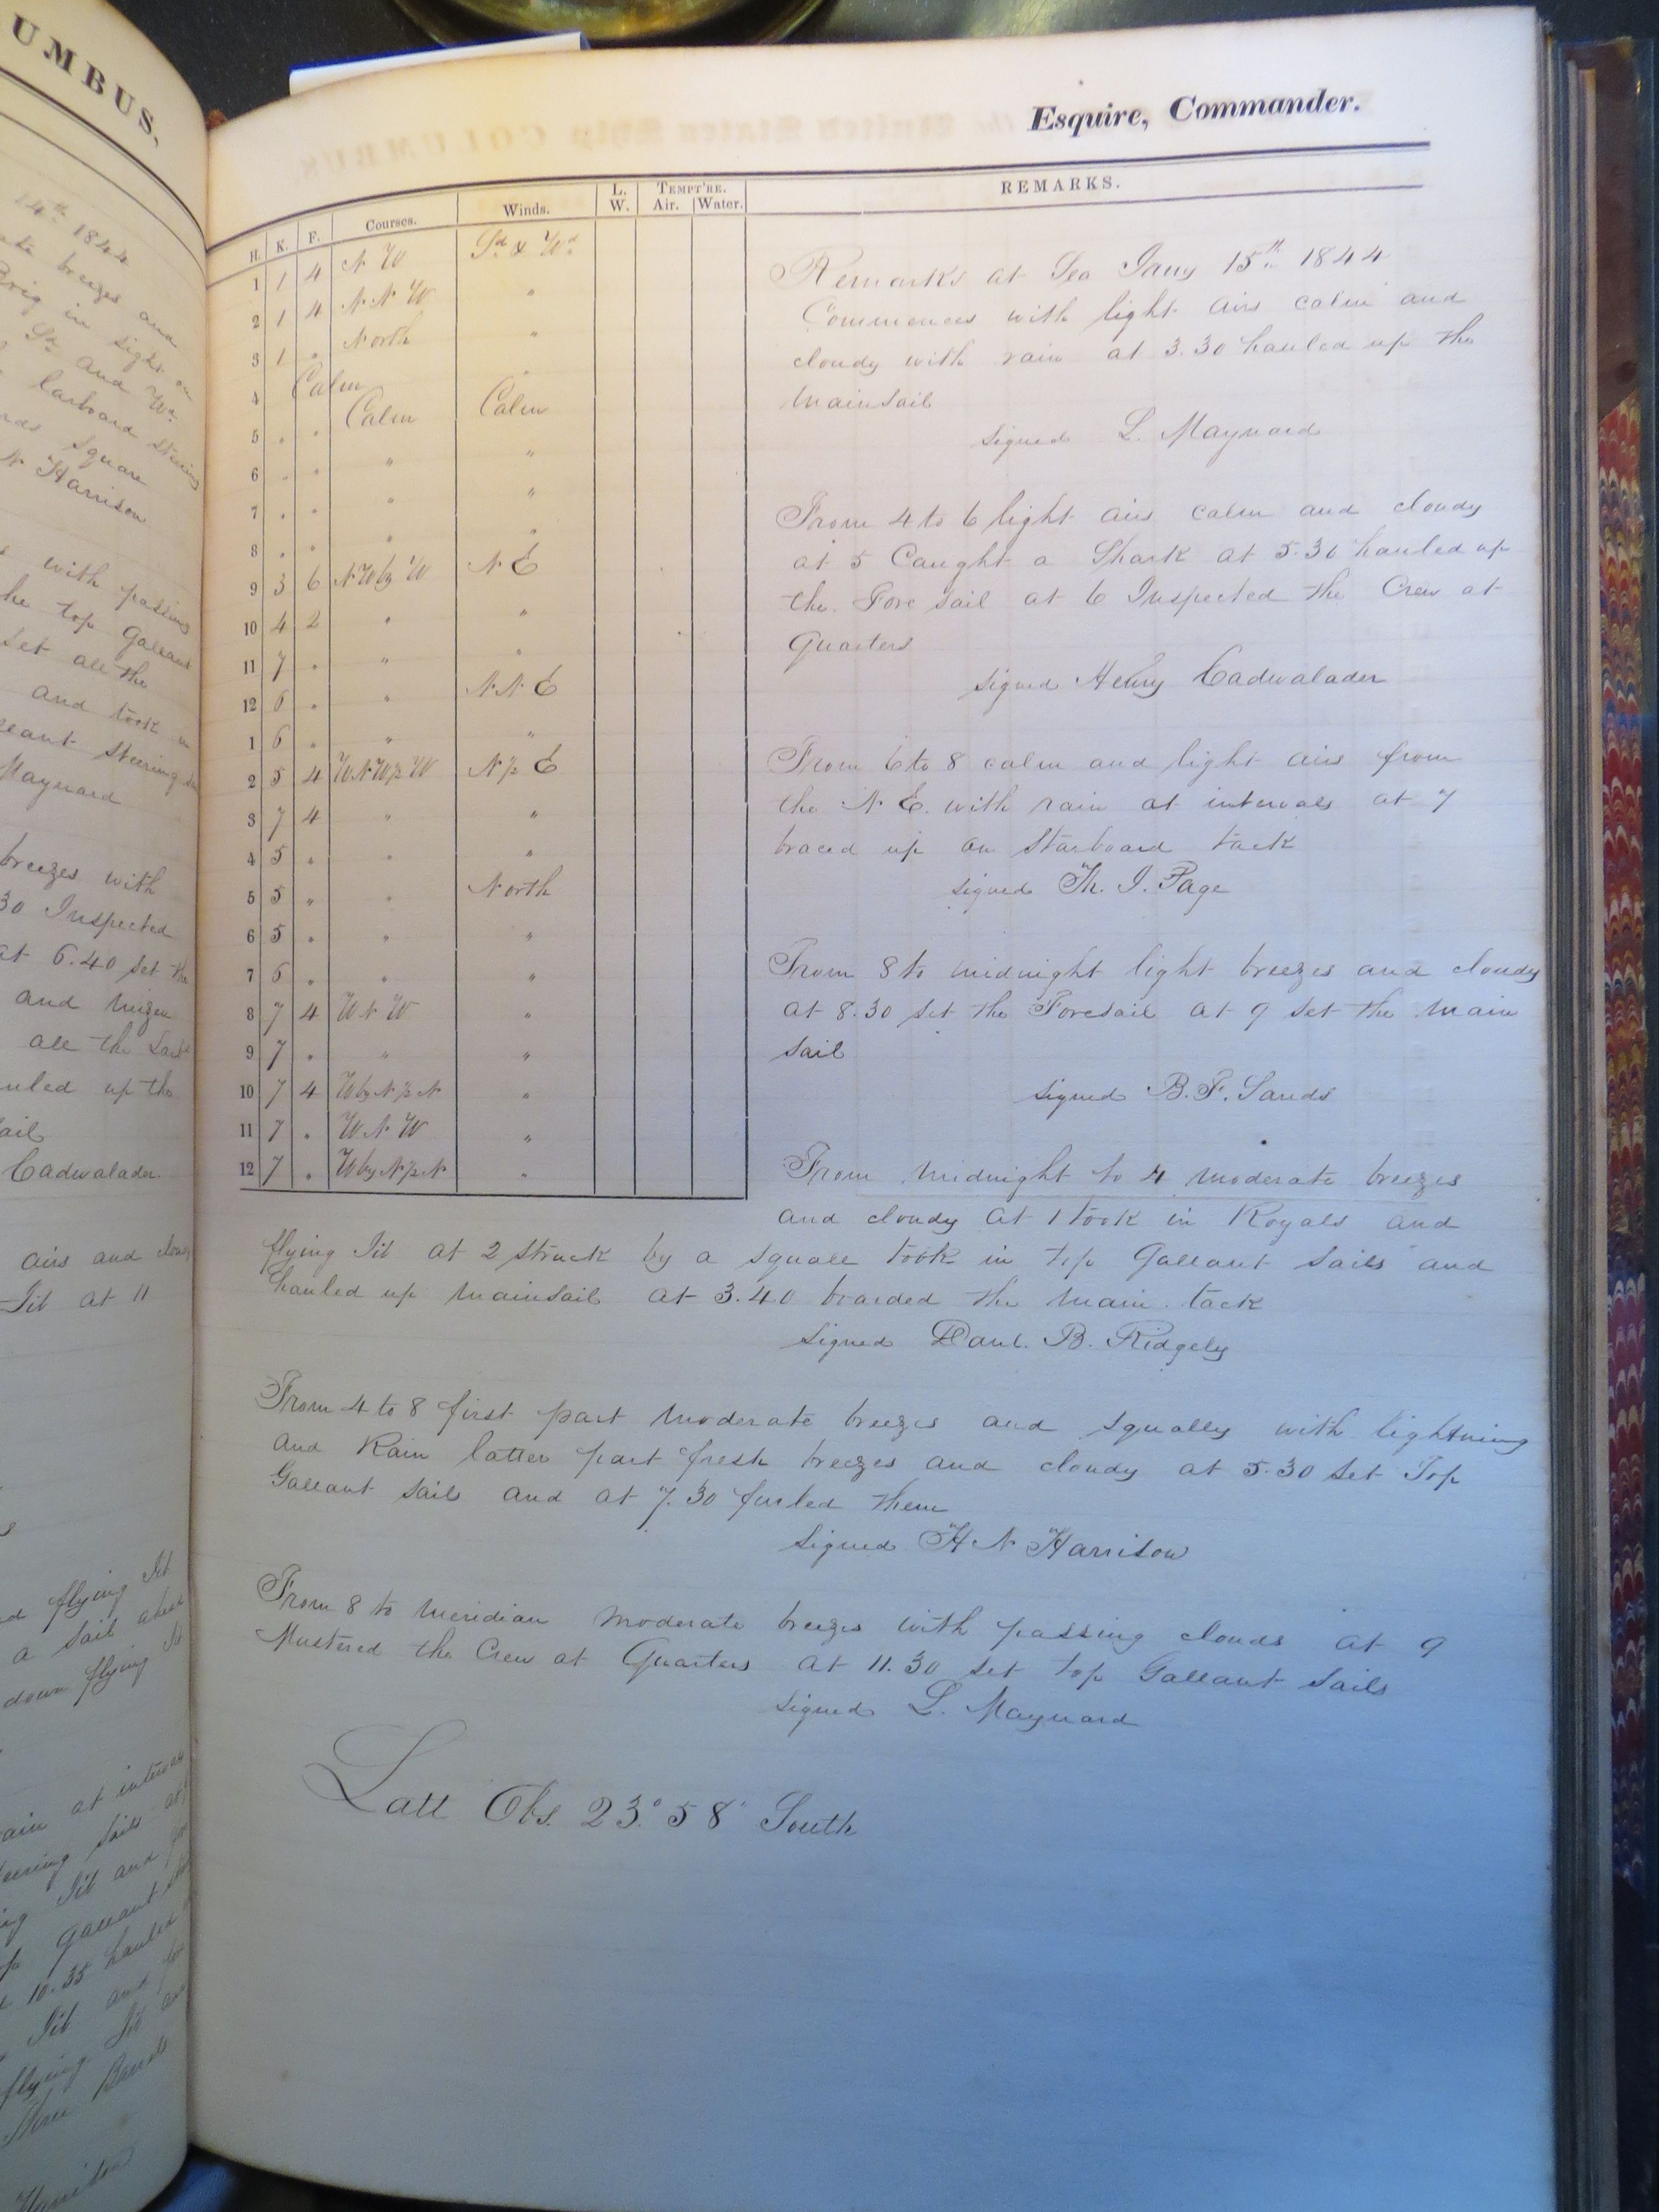 UMBUS,
14th 1844
breezes and
Brig in sight on
Sd. and Wd.
larboard
square
N Harrison
with passing
the top Gallant
set all the
and took in
Steering
Maynard
breezes with
30 Inspected
at 6.40 set the
and mizen
all the
hauled up the
sail
Cadwalader.
airs and
Jib at 11
flying Jib
a Sail ahead
down flying
rain at
Sails
Jib and
gallant
10.35 hauled
Jib and
flying Jib
Esquire, Commander.
H. K. F. Courses. Winds. L. W. TEMPT'RE. Air. Water. REMARKS.
1 1 4 N W Sd. & Wd.
2 1 4 N N W "
3 1 " North "
4 Calm "
5 " " Calm Calm
6 " " " "
7 " " " "
8 " " " "
9 3 6 NW by W N E
10 4 2 " "
11 7 " " "
12 6 " " N N E
1 6 " " "
2 5 4 WNW ½ W N ½ E
3 7 4 " "
4 5 " " "
5 5 " " North
6 5 " " "
7 6 " " "
8 7 4 W N W "
9 7 " " "
10 7 4 W by N ½ N "
11 7 " W N W "
12 7 " W by N ½ N "
Remarks at Sea Jany 15th 1844
Commences with light airs calm and
cloudy with rain at 3.30 hauled up the
mainsail
signed L. Maynard
From 4 to 6 light airs calm and cloudy
at 5 Caught a Shark at 5.30 hauled up
the Fore sail at 6 Inspected the Crew at
Quarters
signed Henry Cadwalader
From 6 to 8 calm and light airs from
the N E. with rain at intervals at 7
braced up on Starboard tack
signed Th. J. Page
From 8 to midnight light breezes and cloudy
at 8.30 set the Foresail at 9 set the main
sail
signed B. F. Sands
From midnight to 4 moderate breezes
and cloudy at 1 took in Royals and
flying Jib at 2 struck by a squall took in top Gallant sails and
hauled up mainsail at 3.40 boarded the main tack
signed Danl. B. Ridgely
From 4 to 8 first part moderate breezes and squally with lightning
and Rain latter part fresh breezes and cloudy at 5.30 set Top
Gallant sails and at 7.30 furled them
signed H N Harrison
From 8 to meridian moderate breezes with passing clouds at 9
Mustered the Crew at Quarters at 11.30 set top Gallant sails
signed L. Maynard
Latt Obs. 23° 58' South